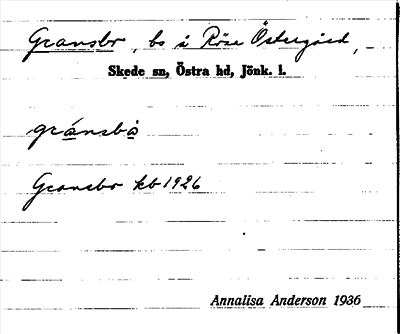 Gransbo, bs å Röse Östergård,
Skede sn, Östra hd, Jönk. l.
gránsbò
Gransbo kb 1926
Annalisa Anderson 1936